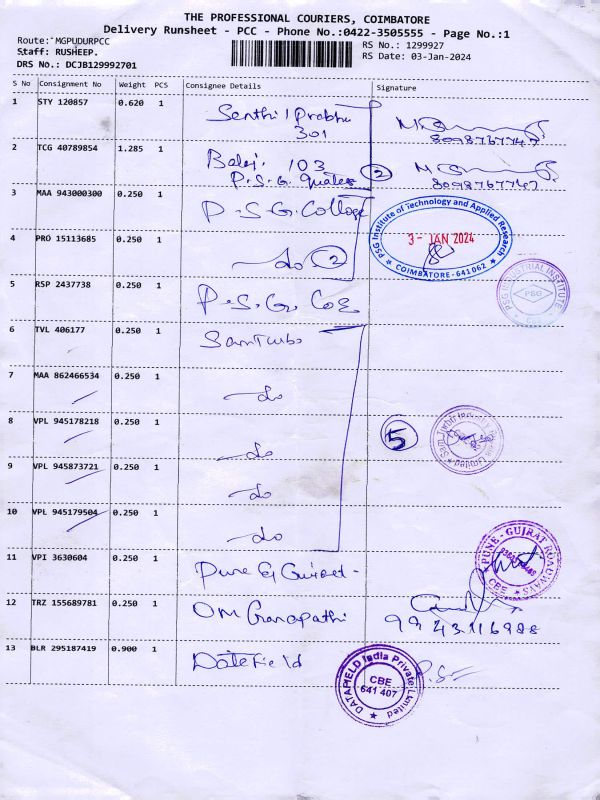 THE PROFESSIONAL COURIERS, COIMBATORE
Delivery Runsheet - PCC - Phone No.:0422-3505555 - Page No.:1
Route: MGPUDURPCC
RS No.: 1299927
Staff: RUSHEEP.
RS Date: 03-Jan-2024
DRS No.: DCJB129992701
S No Consignment No Weight PCS Consignee Details Signature
1 STY 120857 0.620 1 Senthil Prabhu
301
8098767747
2 TCG 40789854 1.285 1 Balaji 103
P.S.G. 2
8098767747
3 MAA 943000300 0.250 1 P.S.G. College
PSG Institute of Technology and Applied Research
3 - JAN 2024
COIMBATORE-641062
4 PRO 15113685 0.250 1 do 2
PSG INDUSTRIAL INSTITUTE
PSG
5 RSP 2437738 0.250 1 P.S.G. COE
6 TVL 406177 0.250 1 Sam Turbo
7 MAA 862466534 0.250 1 do
8 VPL 945178218 0.250 1 do
5
9 VPL 945873721 0.250 1 do
10 VPL 945179504 0.250 1 do
11 VPI 3630604 0.250 1 Pune Gujrat
PUNE - GUJRAT ROADWAYS
CBE
12 TRZ 155689781 0.250 1 OM Ganapathi
9943116988
13 BLR 295187419 0.900 1 Datafield
DATAFIELD India Private Limited
CBE
641 407